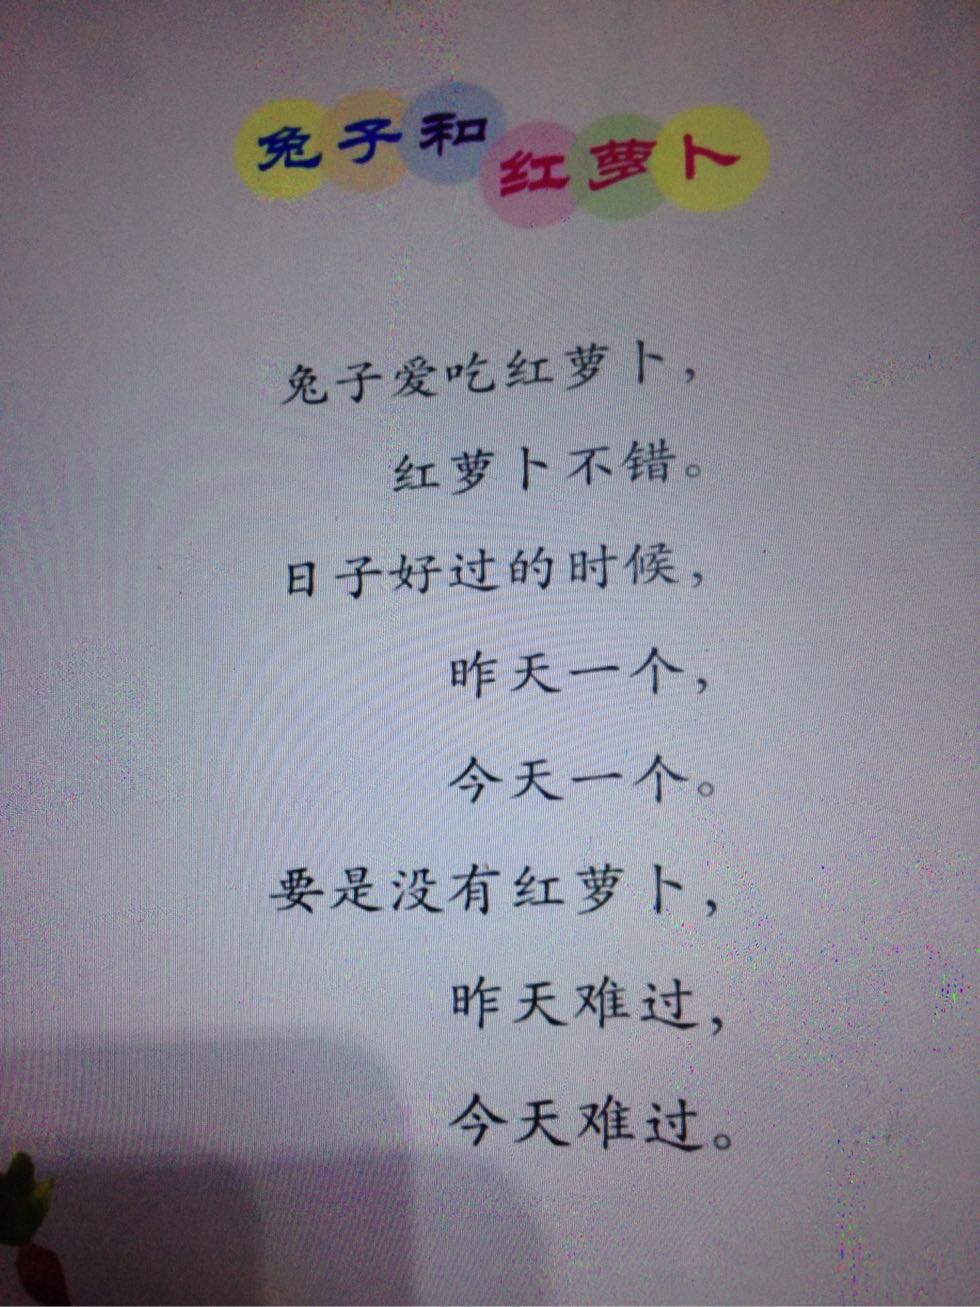 兔子和红萝卜
兔子爱吃红萝卜，
红萝卜不错。
日子好过的时候，
昨天一个，
今天一个。
要是没有红萝卜，
昨天难过，
今天难过。